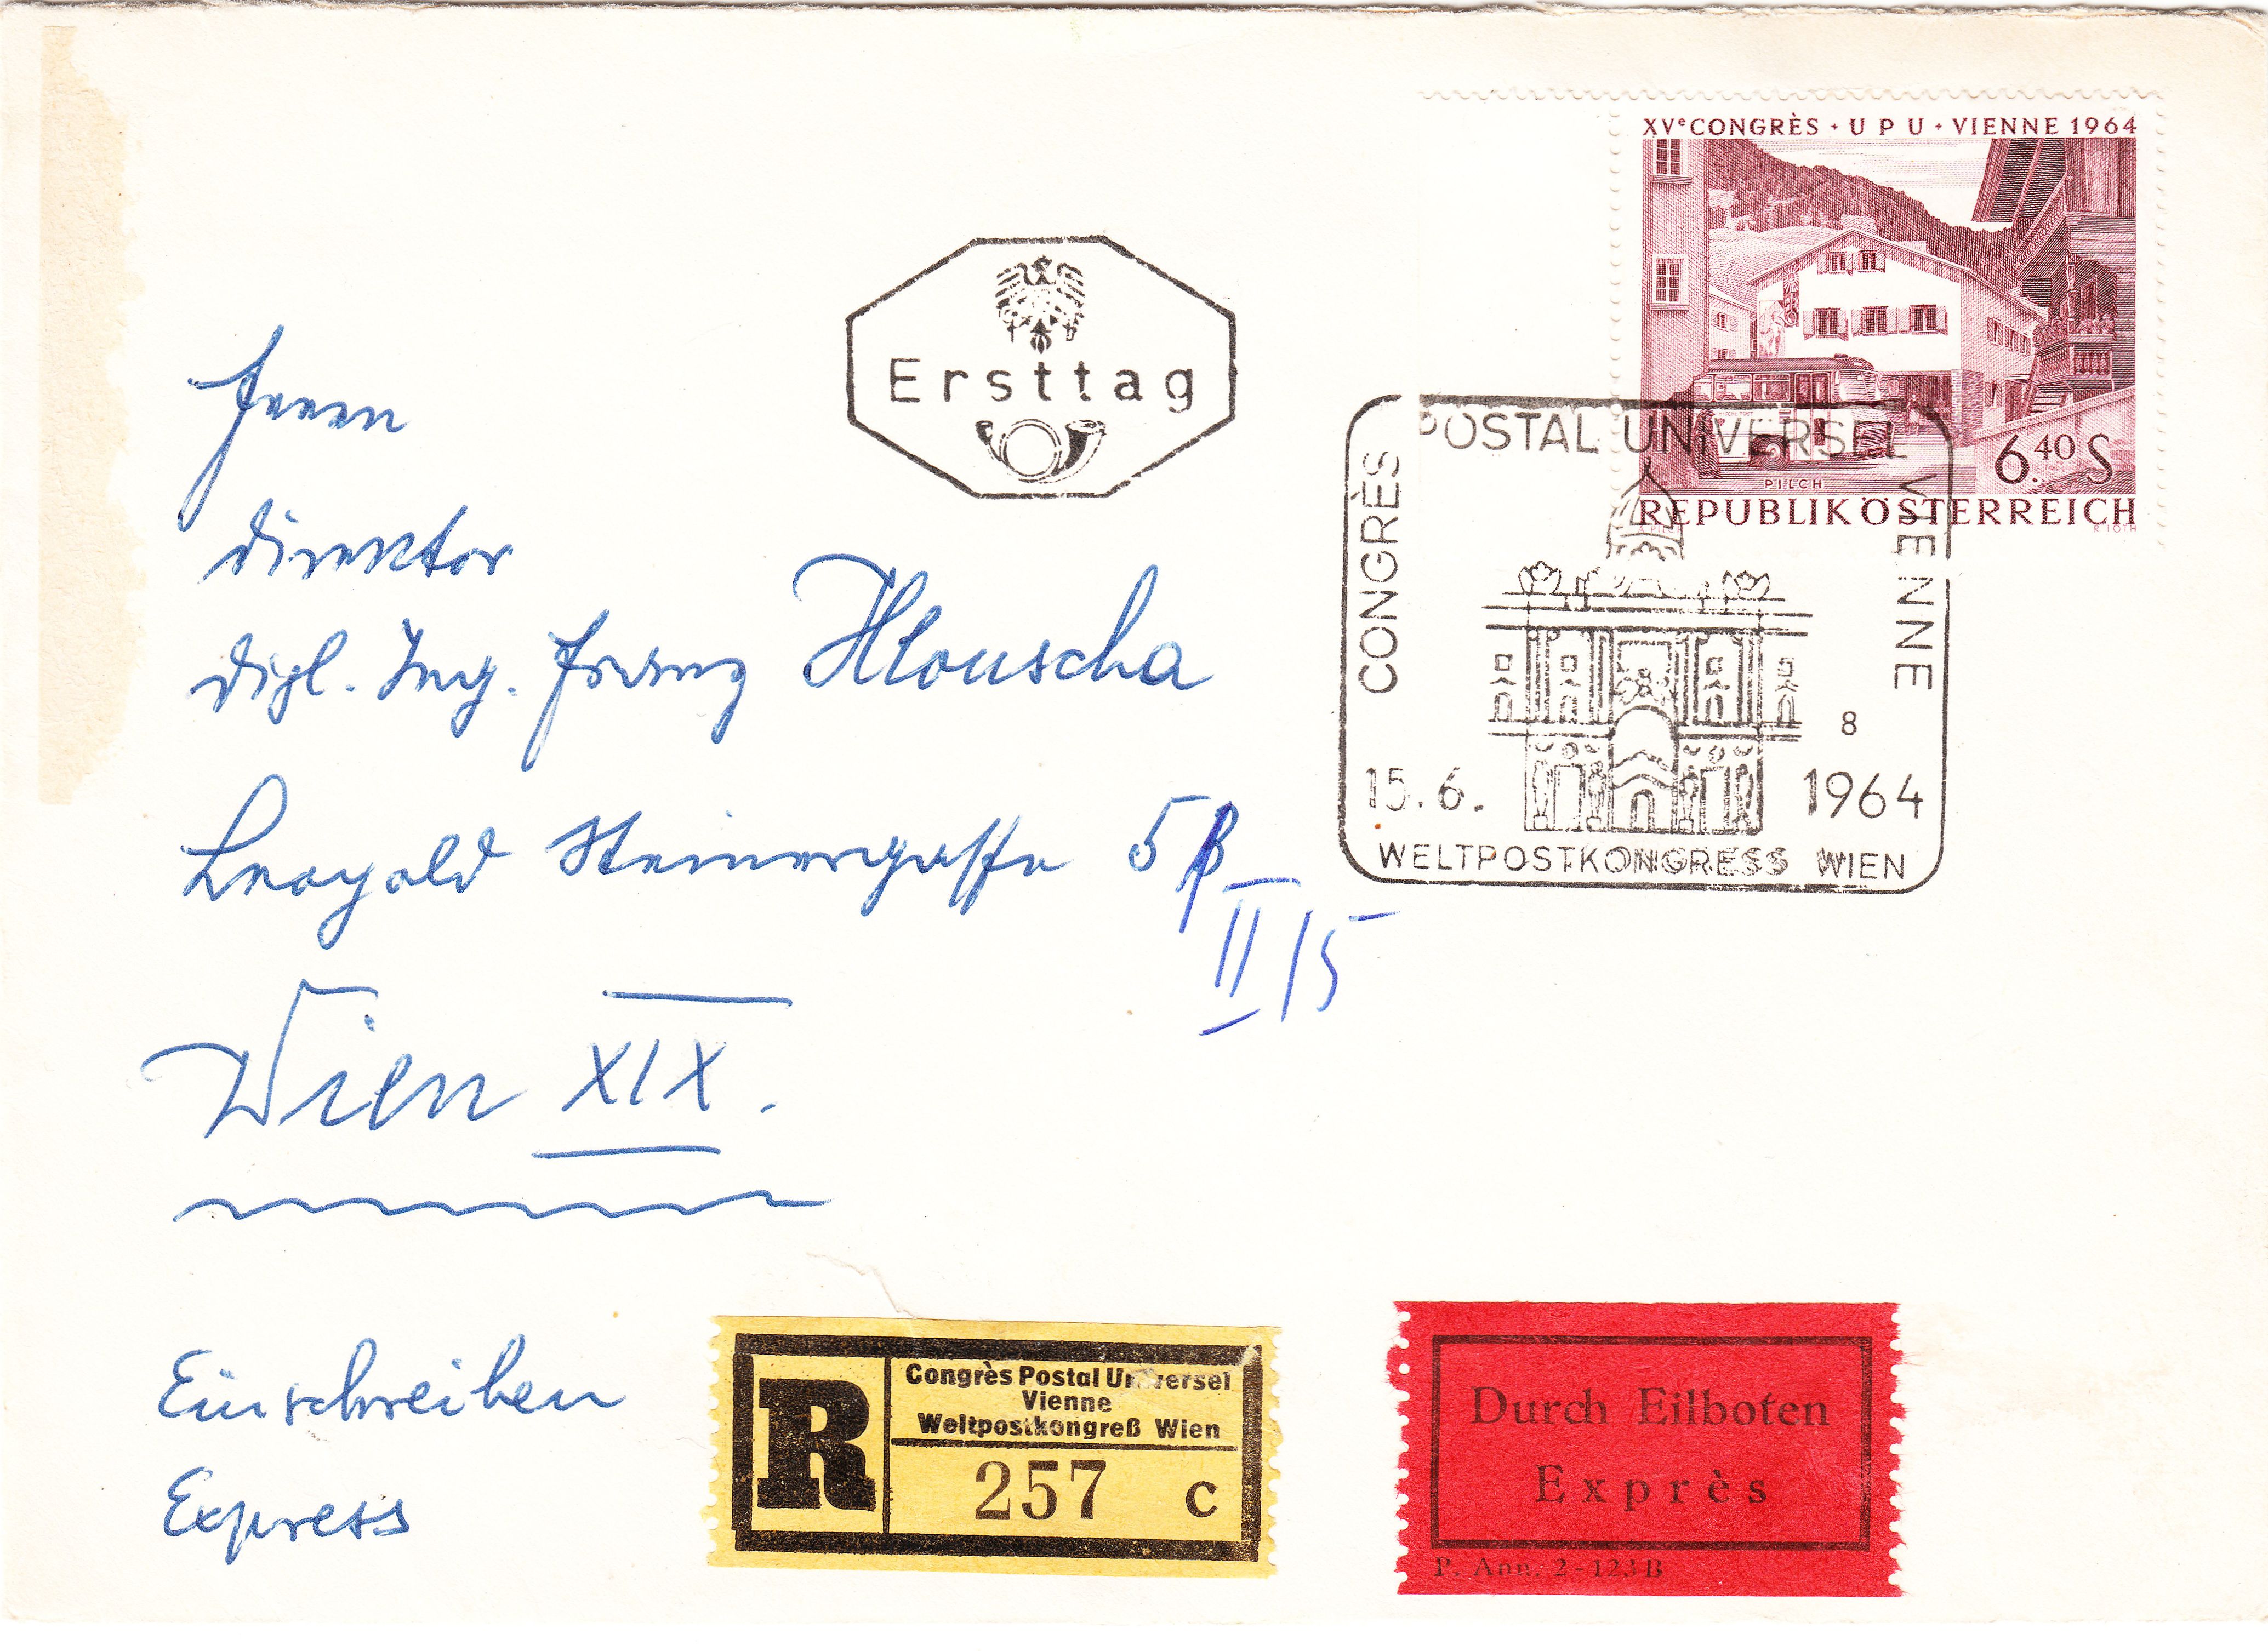 XVe CONGRÈS + U P U + VIENNE 1964
6.40 S
PILCH
REPUBLIK ÖSTERREICH
R. TOTH
Ersttag
CONGRÈS POSTAL UNIVERSEL VIENNE
8
15.6. 1964
WELTPOSTKONGRESS WIEN
Herrn
Direktor
Dipl. Ing. Franz Hlouscha
Leopold Steinergasse 5
II/5
Wien XIX.
Einschreiben
Express
R
Congrès Postal Universel
Vienne
Weltpostkongreß Wien
257 c
Durch Eilboten
Exprès
P. Ann. 2-123B